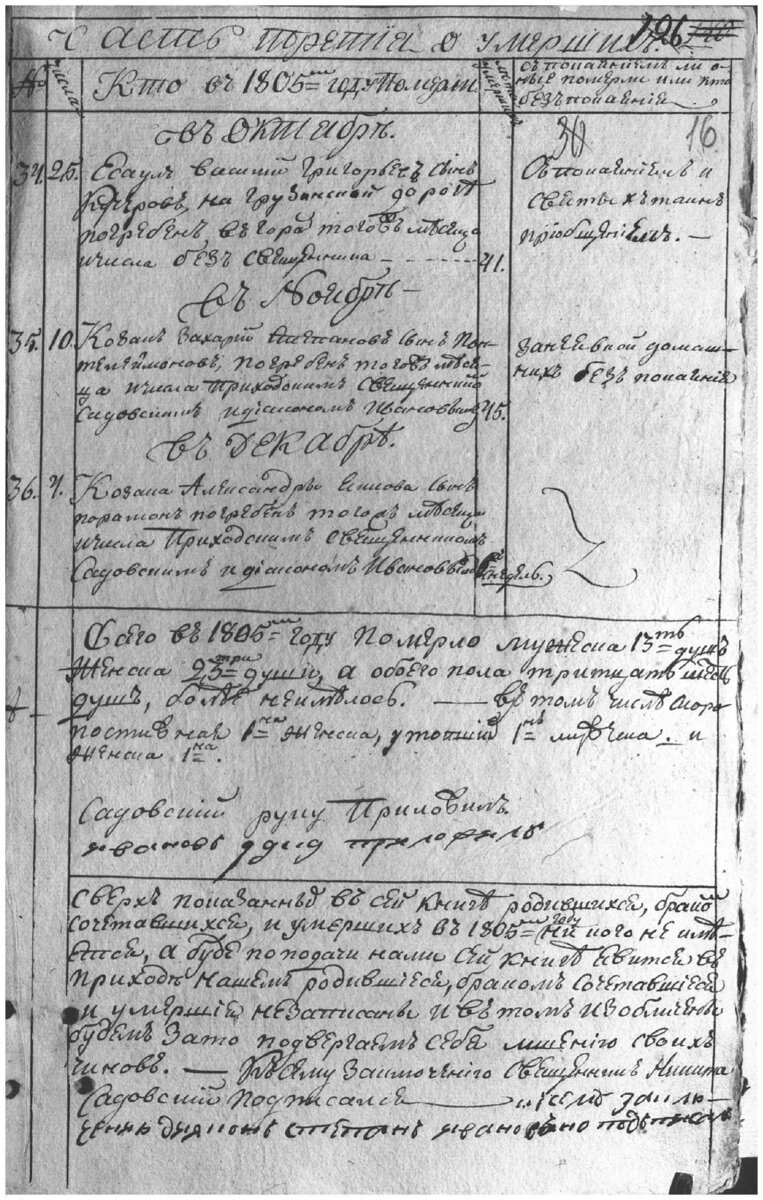 Часть третїа о умершихъ.
126
№
числа
Кто въ 1805мъ году померли
лѣта умершимъ
съ покаянїемъ ли о-
ные померли или кто
без покаянїя
въ Октябрѣ.
30 16
34. 25. Есаулъ василїй григорьевъ сынъ
Кучеровъ, на грузинской дорогѣ
погребенъ въ гора тогожъ мѣсяца
и числа безъ священника 41.
Съ покаянїемъ и
святыхъ таинъ
прїобщенїемъ. —
въ Ноябрѣ —
35. 10. Козакъ Захарїй Степановъ сынъ Пан-
телеймоновъ, погребенъ тогожъ мѣся-
ца и числа приходскимъ священникомъ
Садовскимъ и дїакономъ Ивановымъ 45.
домаш-
нихъ безъ покаянїя
въ Декабрѣ.
36. 4. Козака Александры сынъ
парамонъ погребенъ тогожъ мѣсяца
и числа Приходскимъ священникомъ
Садовскимъ и дїакономъ Ивановымъ недѣль.
Всего въ 1805мъ году померло мужеска 13ть душъ
женска 23три души, а обоего пола тритцать шесть
душъ, болѣе неимѣлось. — въ томъ числѣ скоро
постижная 1на женска, утопшїй 1нъ мужеска. и
женска 1на.
Садовскїй руку Приложилъ
ивановъ приложилъ
Сверхъ показанныхъ въ сей книгѣ родившихся, бракомъ
сочетавшихся, и умершихъ въ 1805мъ году ни кого не имѣ-
ется, а буде по подачи нами сей книгѣ явится въ
приходѣ нашемъ родившїеся, бракомъ сочетавшїеся
и умершїе незаписаны и въ томъ изобличены
будемъ зато подвергаемъ себя лишенїю своихъ
чиновъ. — Къ сему заключенїю священникъ Никита
Садовскїй подписался — и к семѹ заклю-
ченю диякокъ степанъ ивановъ подписался